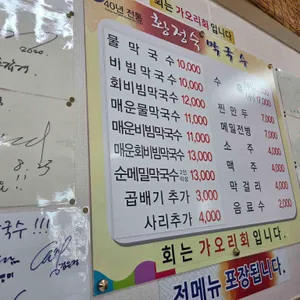 회는 가오리회 입니다.
40년 전통
황정숙 막국수
물 막 국 수 10,000
비 빔 막 국 수 10,000
회비빔막국수 12,000
매운물막국수 11,000
매운비빔막국수 11,000
매운회비빔막국수 13,000
순메밀막국수 13,000
곱배기 추가 3,000
사리추가 4,000
수
17,000
찐 만 두 7,000
메밀전병 7,000
소 주 4,000
맥 주 4,000
막 걸 리 4,000
음 료 수 2,000
회는 가오리회 입니다.
전메뉴 포장됩니다.
막국수 !!!